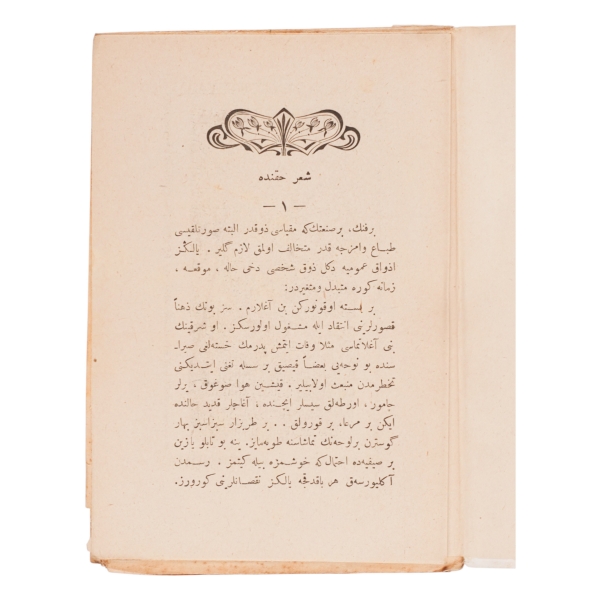 شعر حقنده
— ١ —
بر فنك، بر صنعتك كه مقياسى ذوقدر البته صور تلقيسى
طباع وامزجه قدر متخالف اولمق لازم گلير . يالكز
اذواق عموميه دكل ذوق شخصى دخى حاله ، موقعه ،
زمانه كوره متبدل ومتغيردر:
بر بسته اوقونوركن بن آغلارم . سز بونك ذهناً
قصورلرينى انتقاد ايله مشغول اولورسكز . او شرقينك
بنى آغلاتماسى مثلا وفات ايتمش پدرمك خسته‌لغى صيرا-
سنده بو نوحه‌يى بعضاً قيصيق بر سسله تغنى ايتديكنى
تخطرمدن منبعث اولابيلير . قيشين هوا صوغوق ، يرلر
جامور ، اورطه‌لق سيسلر ايچنده ، آغاچلر قديد حالنده
ايكن بر مرعا، بر قورولق . . بر طرزار سبزاسبز بهار
گوسترن بر لوحه‌نك تماشاسنه طويه‌مايز. ينه بو تابلو يازين
بر صيفيه‌ده احتمال كه خوشمزه بيله كيتمز . رسمدن
آكليورسه‌ق هر باقدقجه يالكز نقصانلرينى كورورز.